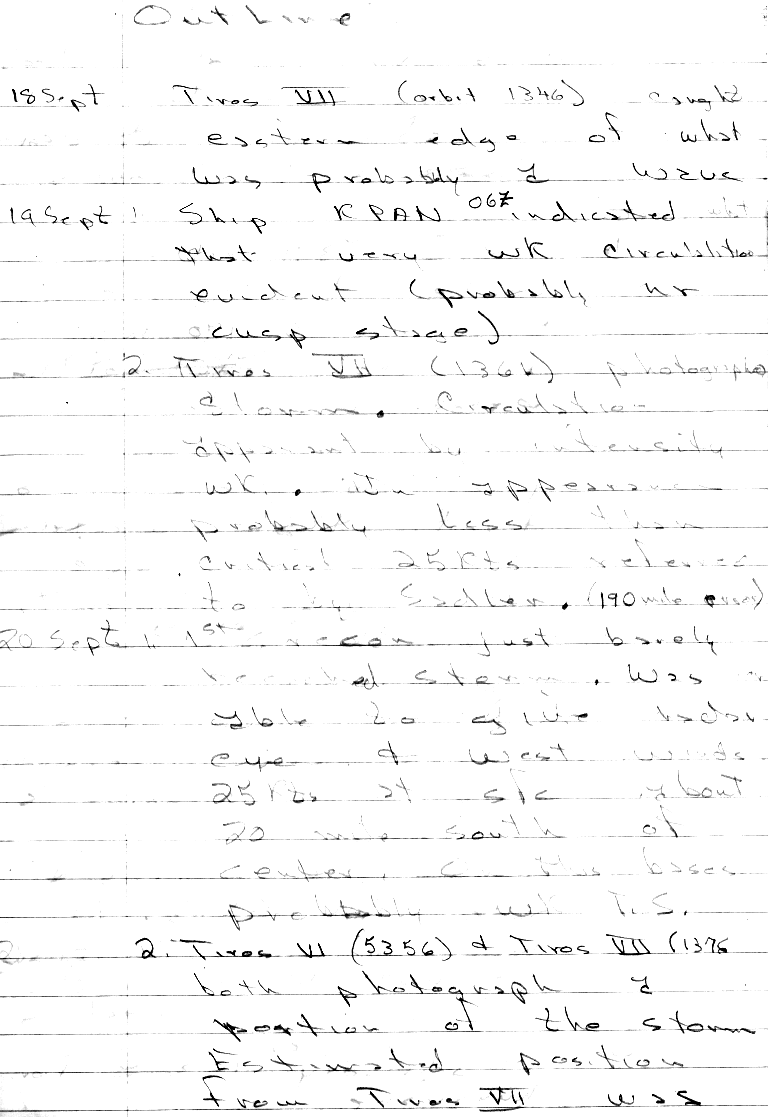 Outline
18 Sept Tiros VII (orbit 1346) caught
eastern edge of what
was probably a wave
19 Sept 1. Ship KPAN 06Z indicated
that very wk circulation
evident (probably nr
cusp stage)
2. Tiros VII (1361) photographs
storm. Circulation
apparent but intensity
wk. In appearance
probably less than
critical 25 Kts referred
to by Sadler. (190 mile error)
20 Sept 1. 1st recon just barely
reached storm. Was
able to give radar
eye & west winds
25 Kts at sfc about
20 mile south of
center. On this bases
probably wk T.S.
2. Tiros VI (5356) & Tiros VII (1376
both photograph a
portion of the storm
Estimated position
from Tiros VII was